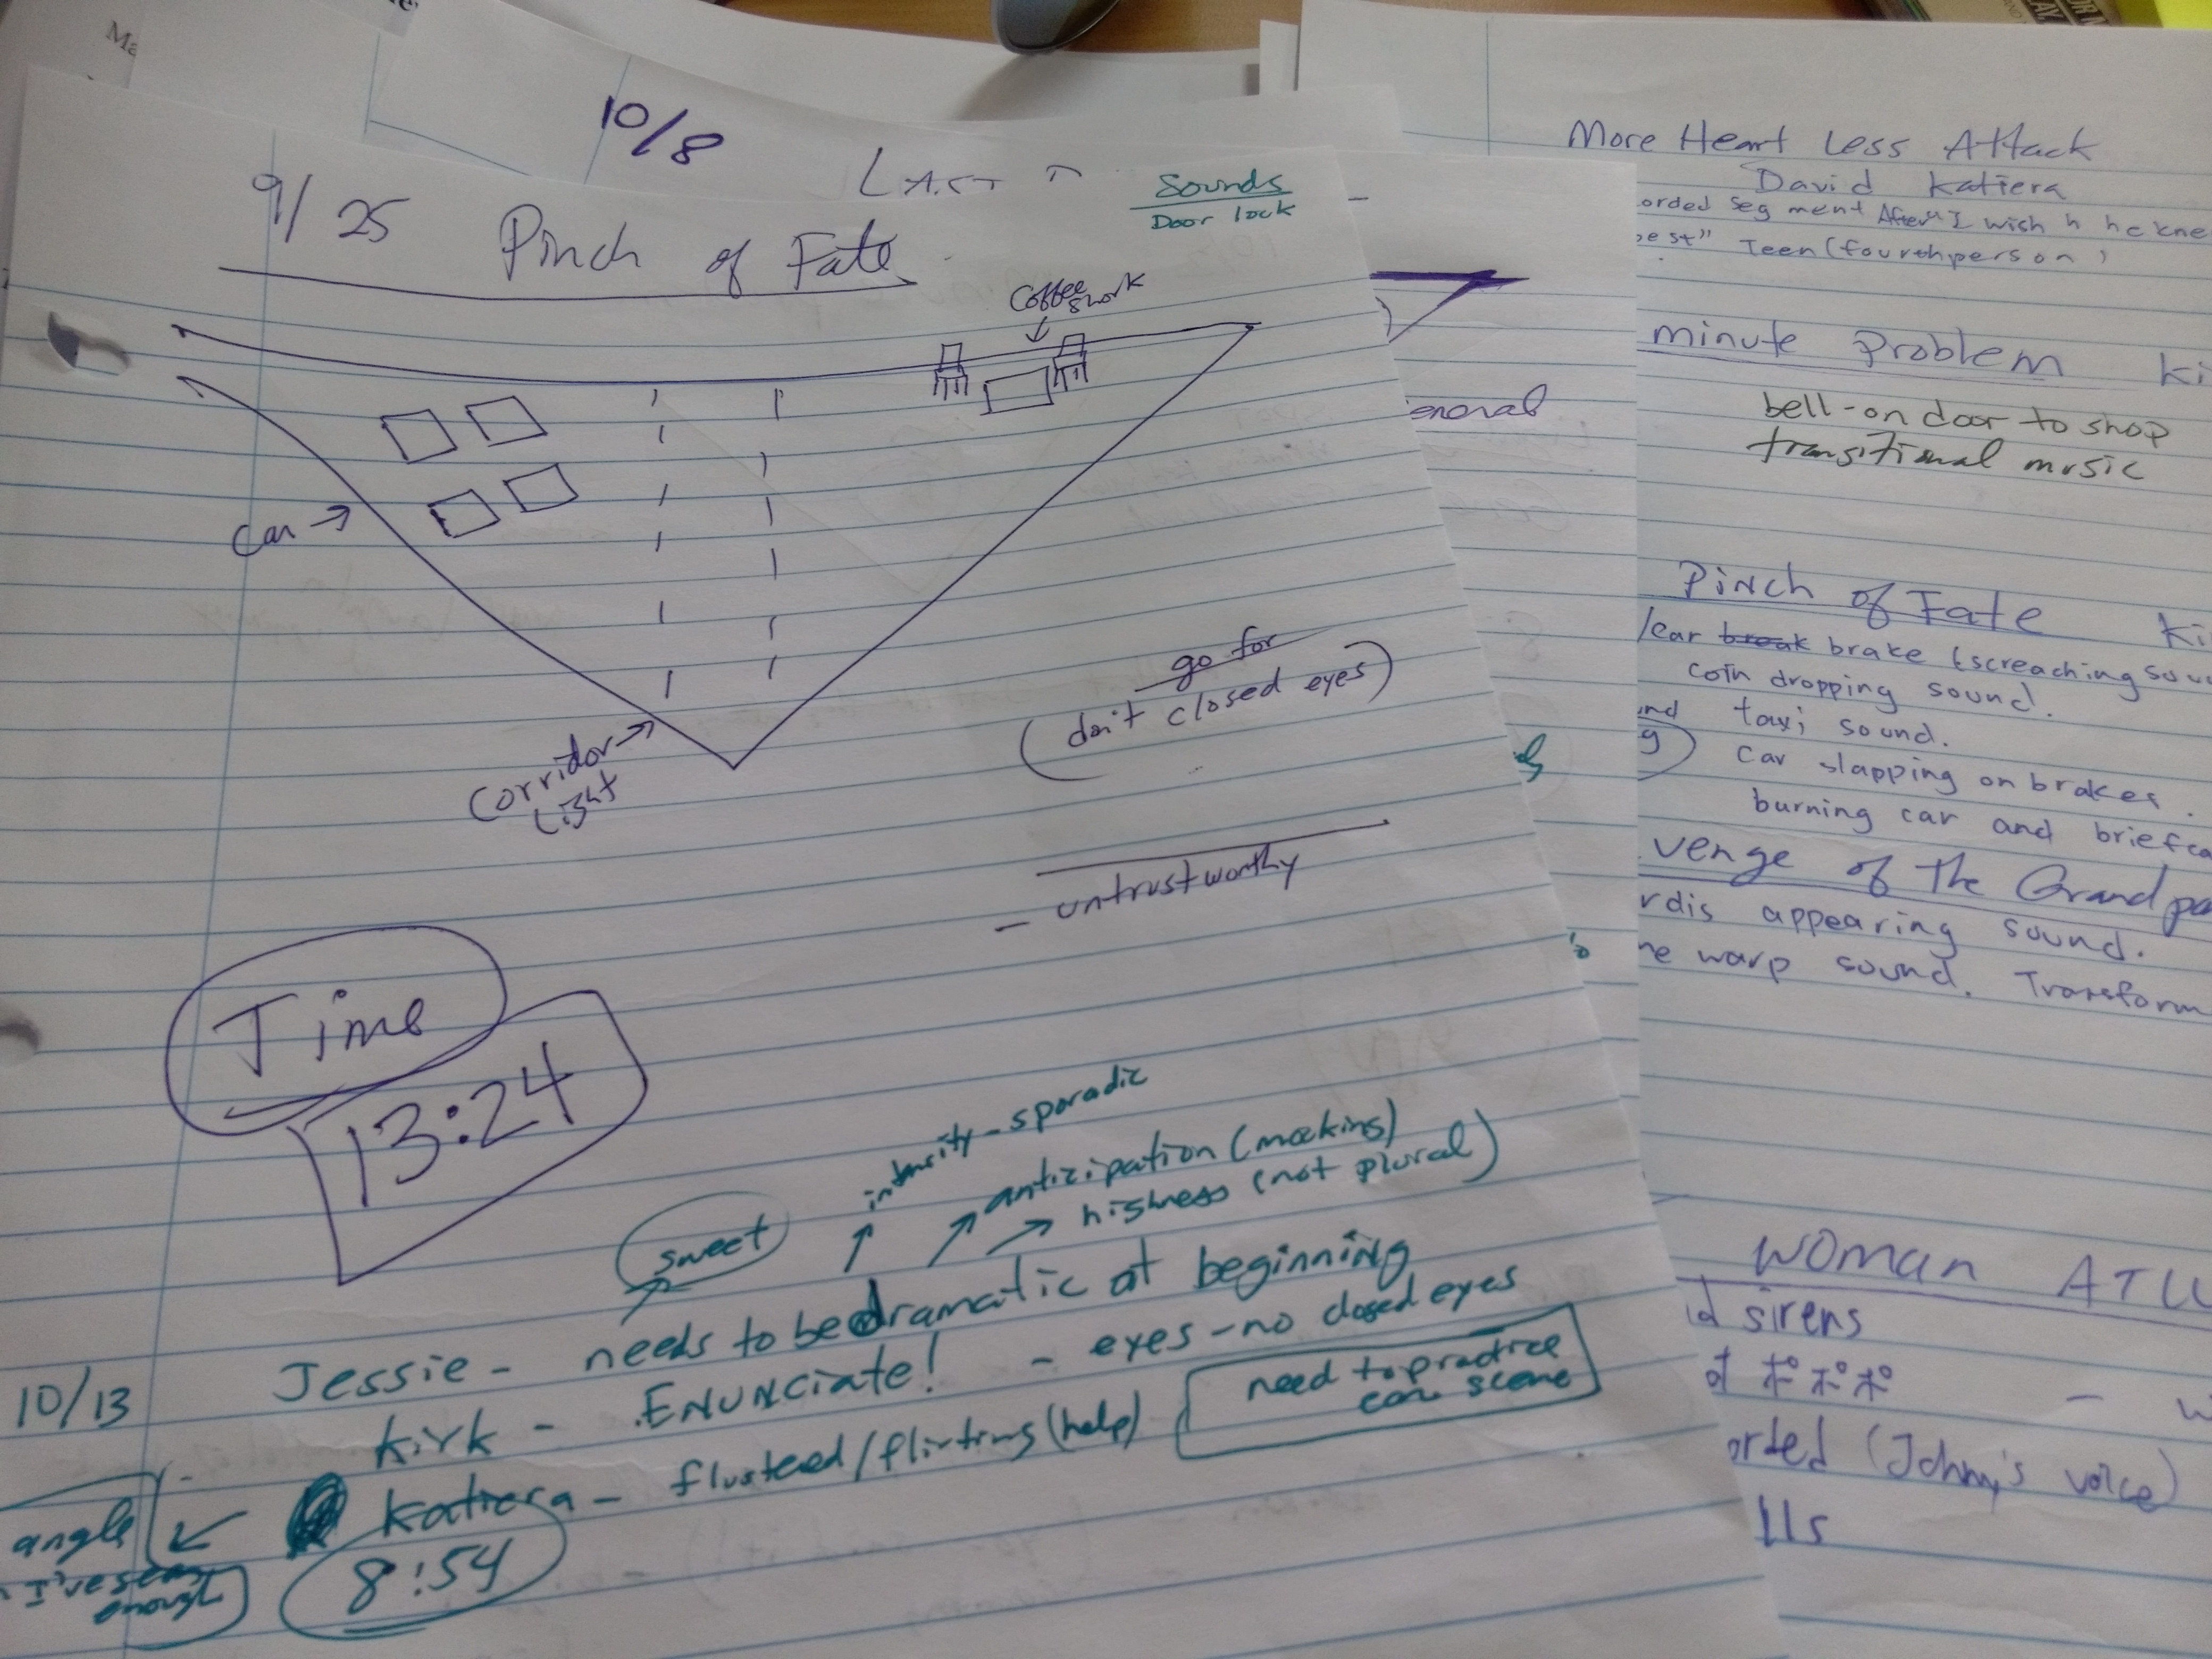 10/8
9/25 Pinch of Fate
Sounds
Door lock
Coffee
Car →
Corridor →
Light
go for
(don't closed eyes)
- untrustworthy
Time
13:24
sweet
intensity - sporadic
anticipation (mocking)
highness (not plural)
10/13
Jessie - needs to be dramatic at beginning
Kirk - ENUNCiate! - eyes - no closed eyes
Katiera - flustered/flirting (help)
need to practice
scene
8:54
angle
I've seen
enough
More Heart Less Attack
David Katiera
orded segment After "I wish h he kne
est" Teen (fourth person)
minute Problem Ki
bell-on door to shop
transitional music
Pinch of Fate Ki
/car break brake (screaching sou
coin dropping sound.
taxi sound.
Car slapping on brakes.
burning car and briefca
venge of The Grandpa
rdis appearing sound.
me warp sound. Transform
WOMAN ATU
d sirens
orted (Johnny's voice)
lls